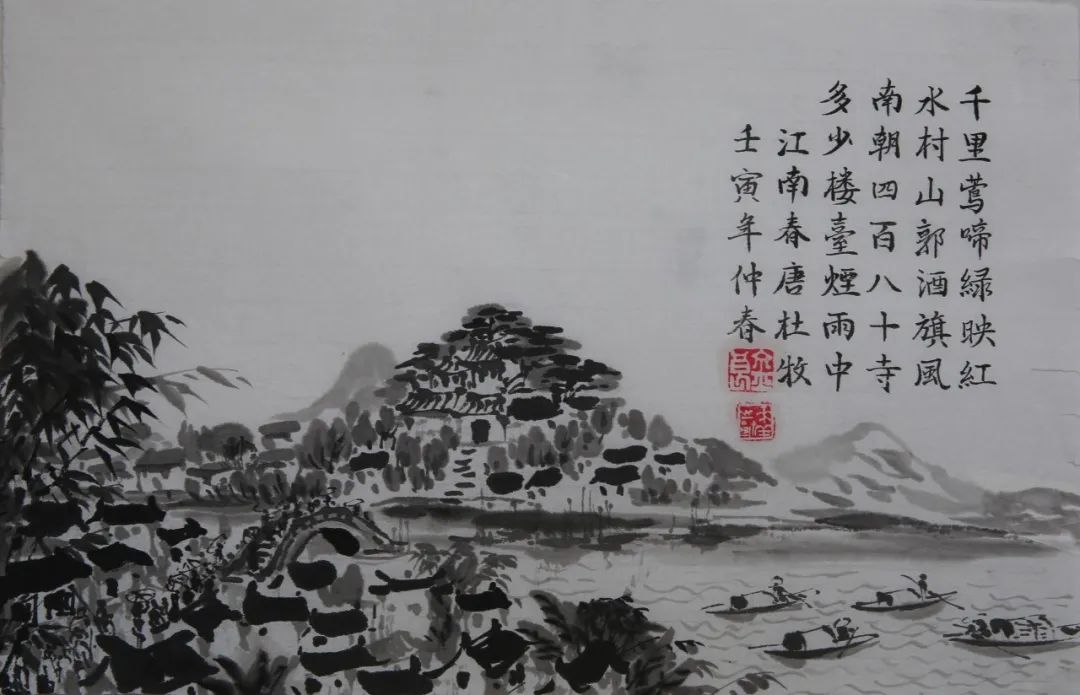 千里莺啼緑映紅
水村山郭酒旗風
南朝四百八十寺
多少楼臺煙雨中
江南春唐杜牧
壬寅年仲春